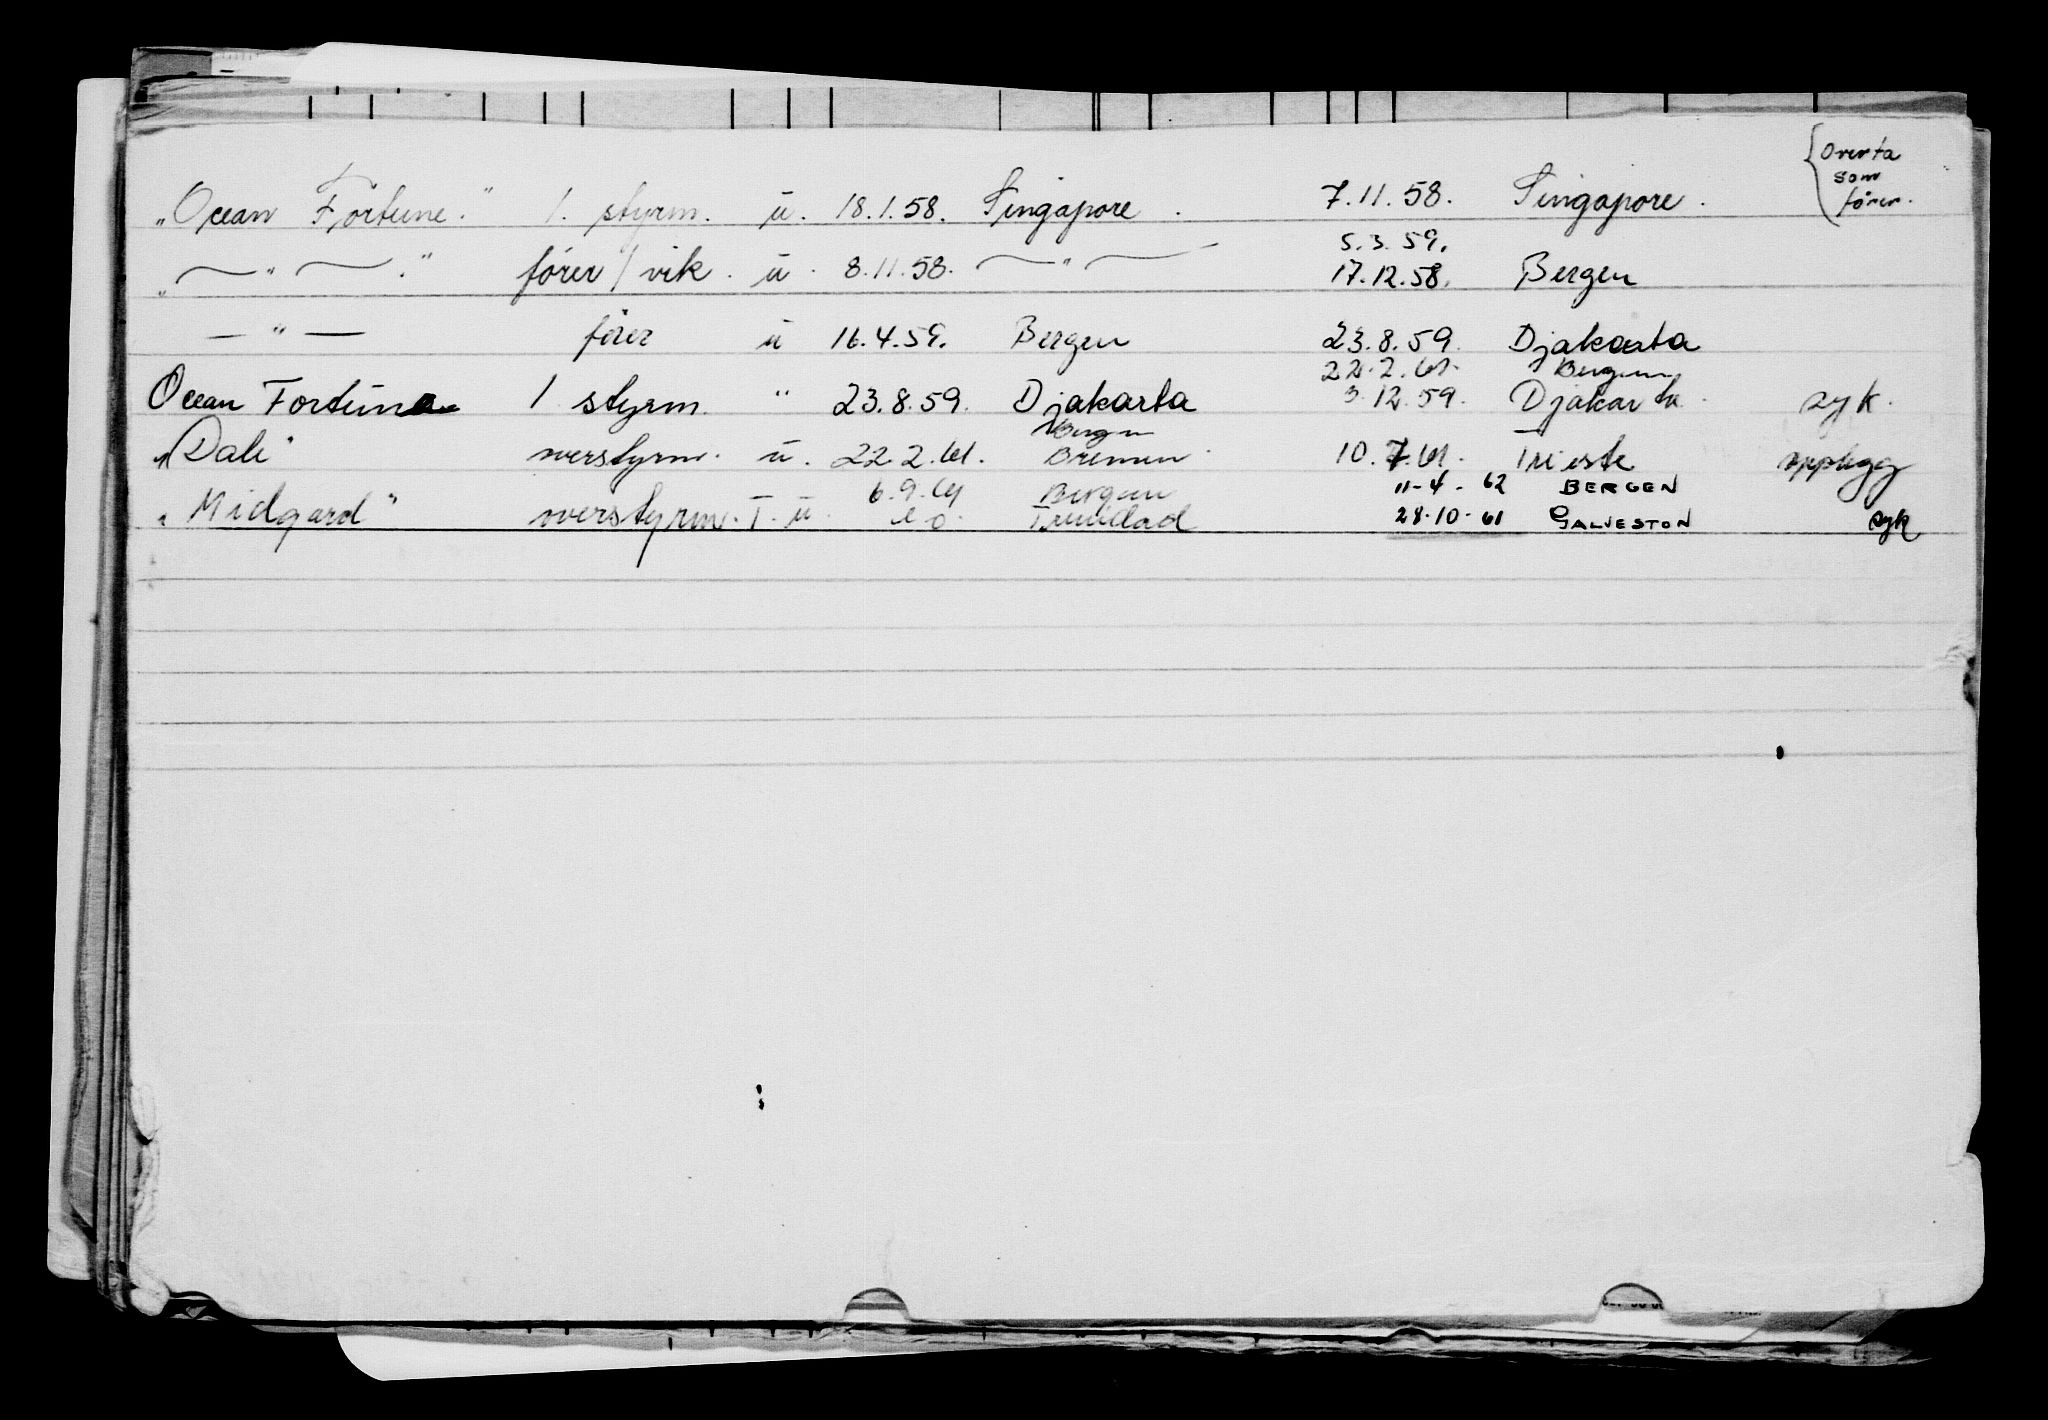 {overta
som
fører.
„Ocean Fortune." 1. styrm. u. 18.1.58. Singapore. 7.11.58. Singapore.
5.3.59.
„—"—." fører/vik. u. 8.11.58. —"— 17.12.58. Bergen
—"— fører u 16.4.59. Bergen 23.8.59. Djakarta
22.2.61. Bergen
Ocean Fortune 1 styrm. " 23.8.59. Djakarta 3.12.59. Djakarta. syk.
Bergen
„Dali" overstyrm. u. 22.2.61. Bremen. 10.7.61. Trieste opplegg
6.9.61 Bergen 11-4-62 BERGEN
„Midgard" overstyrm. T. u. Trinidad 28-10-61 GALVESTON syk